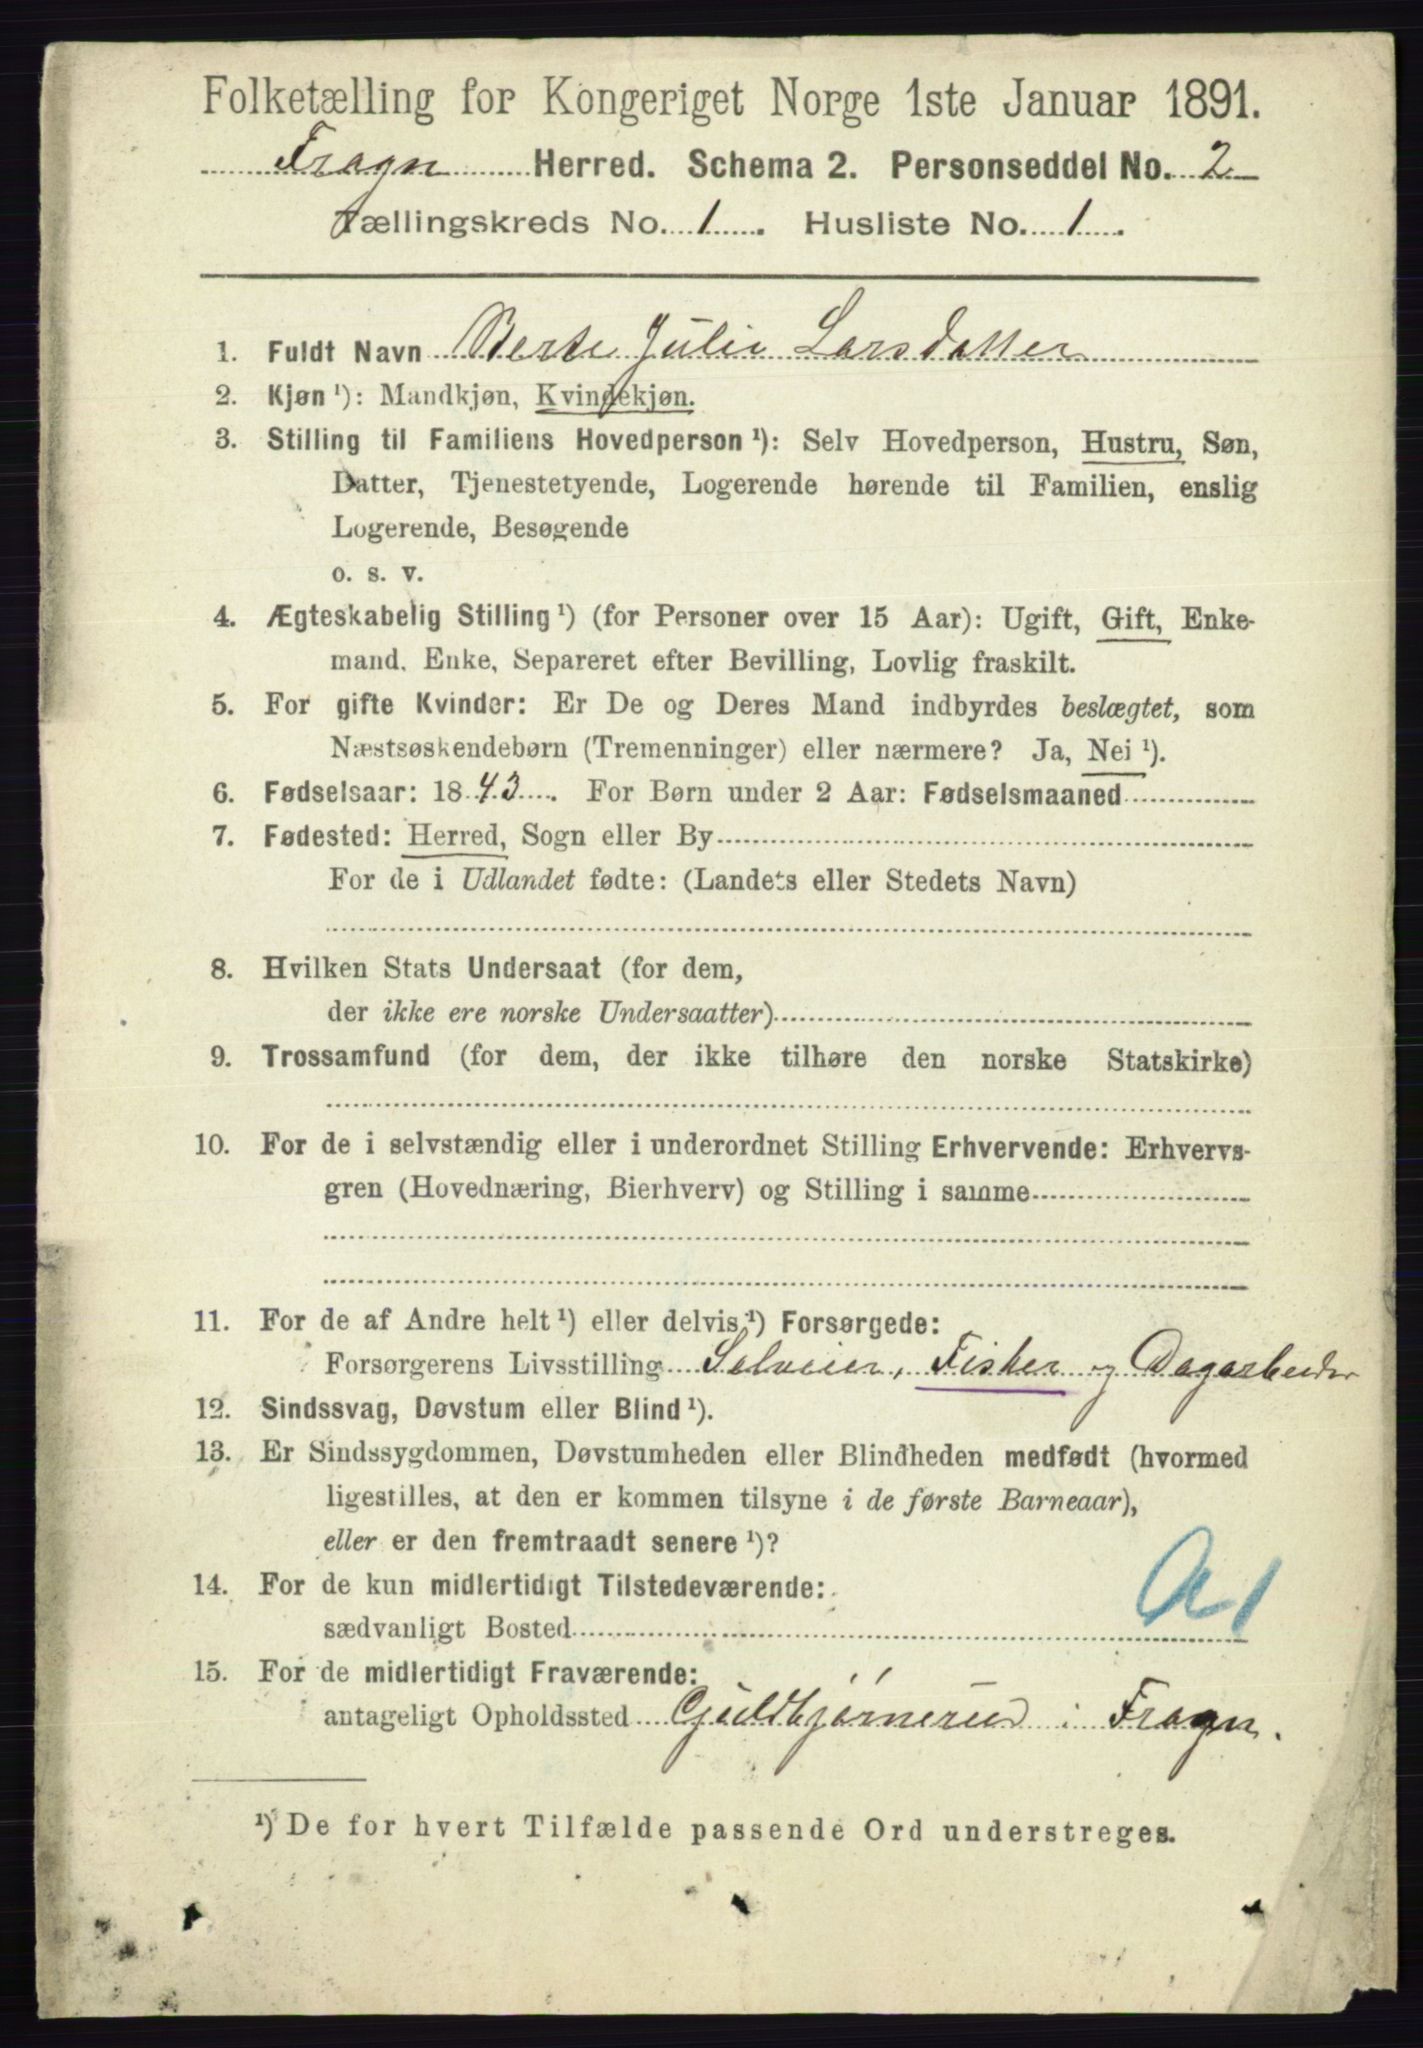 Folketælling for Kongeriget Norge 1ste Januar 1891.
Frogn Herred. Schema 2. Personseddel No. 2
Tællingskreds No. 1. Husliste No. 1.
1. Fuldt Navn Berte Julie Larsdatter
2. Kjøn ¹): Mandkjøn, Kvindekjøn.
3. Stilling til Familiens Hovedperson ¹): Selv Hovedperson, Hustru, Søn,
Datter, Tjenestetyende, Logerende hørende til Familien, enslig
Logerende, Besøgende
o. s. v.
4. Ægteskabelig Stilling ¹) (for Personer over 15 Aar): Ugift, Gift, Enke-
mand, Enke, Separeret efter Bevilling, Lovlig fraskilt.
5. For gifte Kvinder: Er De og Deres Mand indbyrdes beslægtet, som
Næstsøskendebørn (Tremenninger) eller nærmere? Ja, Nei ¹).
6. Fødselsaar: 1843. For Børn under 2 Aar: Fødselsmaaned
7. Fødested: Herred, Sogn eller By
For de i Udlandet fødte: (Landets eller Stedets Navn)
8. Hvilken Stats Undersaat (for dem,
der ikke ere norske Undersaatter)
9. Trossamfund (for dem, der ikke tilhøre den norske Statskirke)
10. For de i selvstændig eller i underordnet Stilling Erhvervende: Erhvervs-
gren (Hovednæring, Bierhverv) og Stilling i samme
11. For de af Andre helt ¹) eller delvis ¹) Forsørgede:
Forsørgerens Livsstilling Selveier, Fisker og Dagarbeider
12. Sindssvag, Døvstum eller Blind ¹).
13. Er Sindssygdommen, Døvstumheden eller Blindheden medfødt (hvormed
ligestilles, at den er kommen tilsyne i de første Barneaar),
eller er den fremtraadt senere ¹)?
14. For de kun midlertidigt Tilstedeværende:
sædvanligt Bosted
15. For de midlertidigt Fraværende:
antageligt Opholdssted Guldbjørnerud i Frogn.
¹) De for hvert Tilfælde passende Ord understreges.